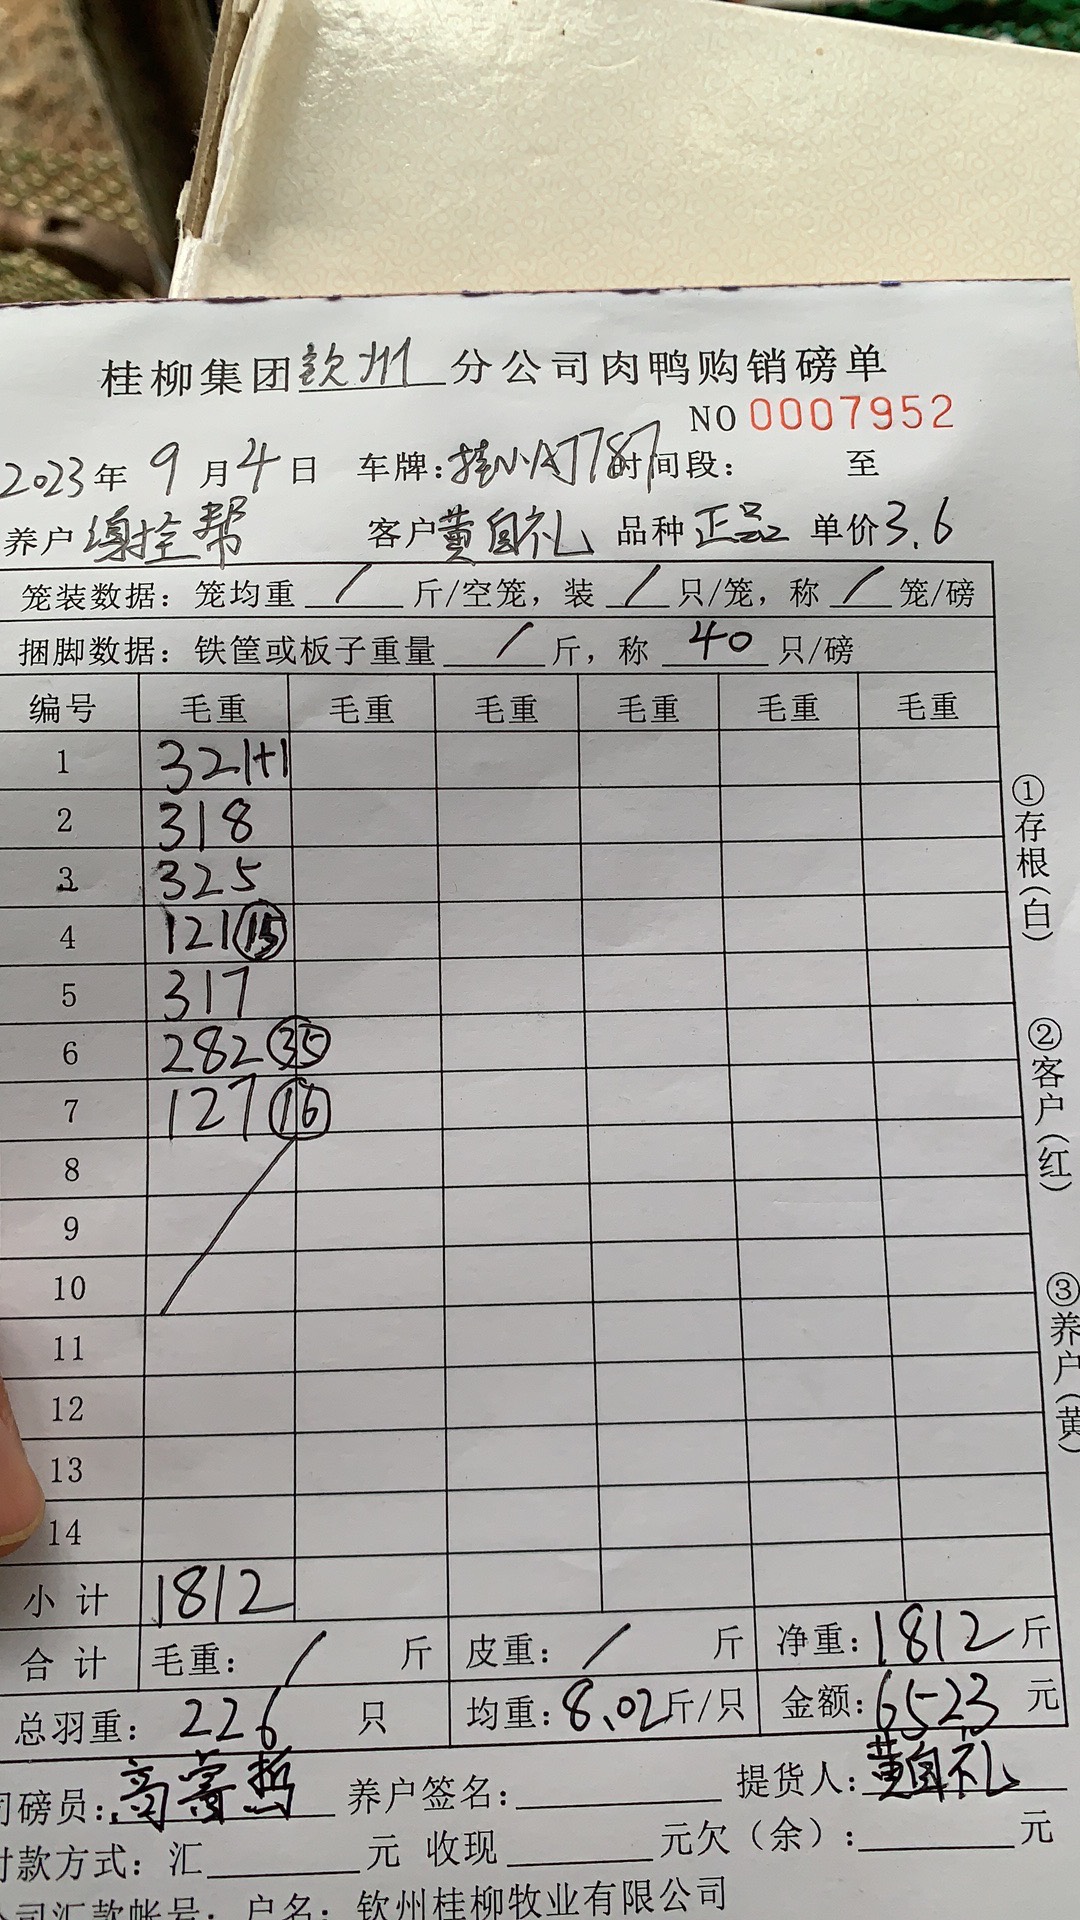 桂柳集团钦州分公司肉鸭购销磅单
NO 0007952
2023年 9月4日 车牌: 时间段: 至
养户 帮 客户黄自礼 品种 正品 单价3.6
笼装数据: 笼均重 / 斤/空笼, 装 / 只/笼, 称 / 笼/磅
捆脚数据: 铁筐或板子重量 / 斤, 称 40 只/磅
编号 毛重 毛重 毛重 毛重 毛重 毛重
1 321+1
2 318
3 325
4 121 15
5 317
6 282 35
7 127 16
8
9
10
11
12
13
14
小计 1812
合计 毛重: / 斤 皮重: / 斤 净重: 1812斤
总羽重: 226 只 均重: 8.02斤/只 金额: 6523 元
磅员: 养户签名: 提货人: 黄自礼
付款方式: 汇 元 收现 元欠(余): 元
公司汇款帐号: 户名: 钦州桂柳牧业有限公司
①存根(白)
②客户(红)
③养户(黄)